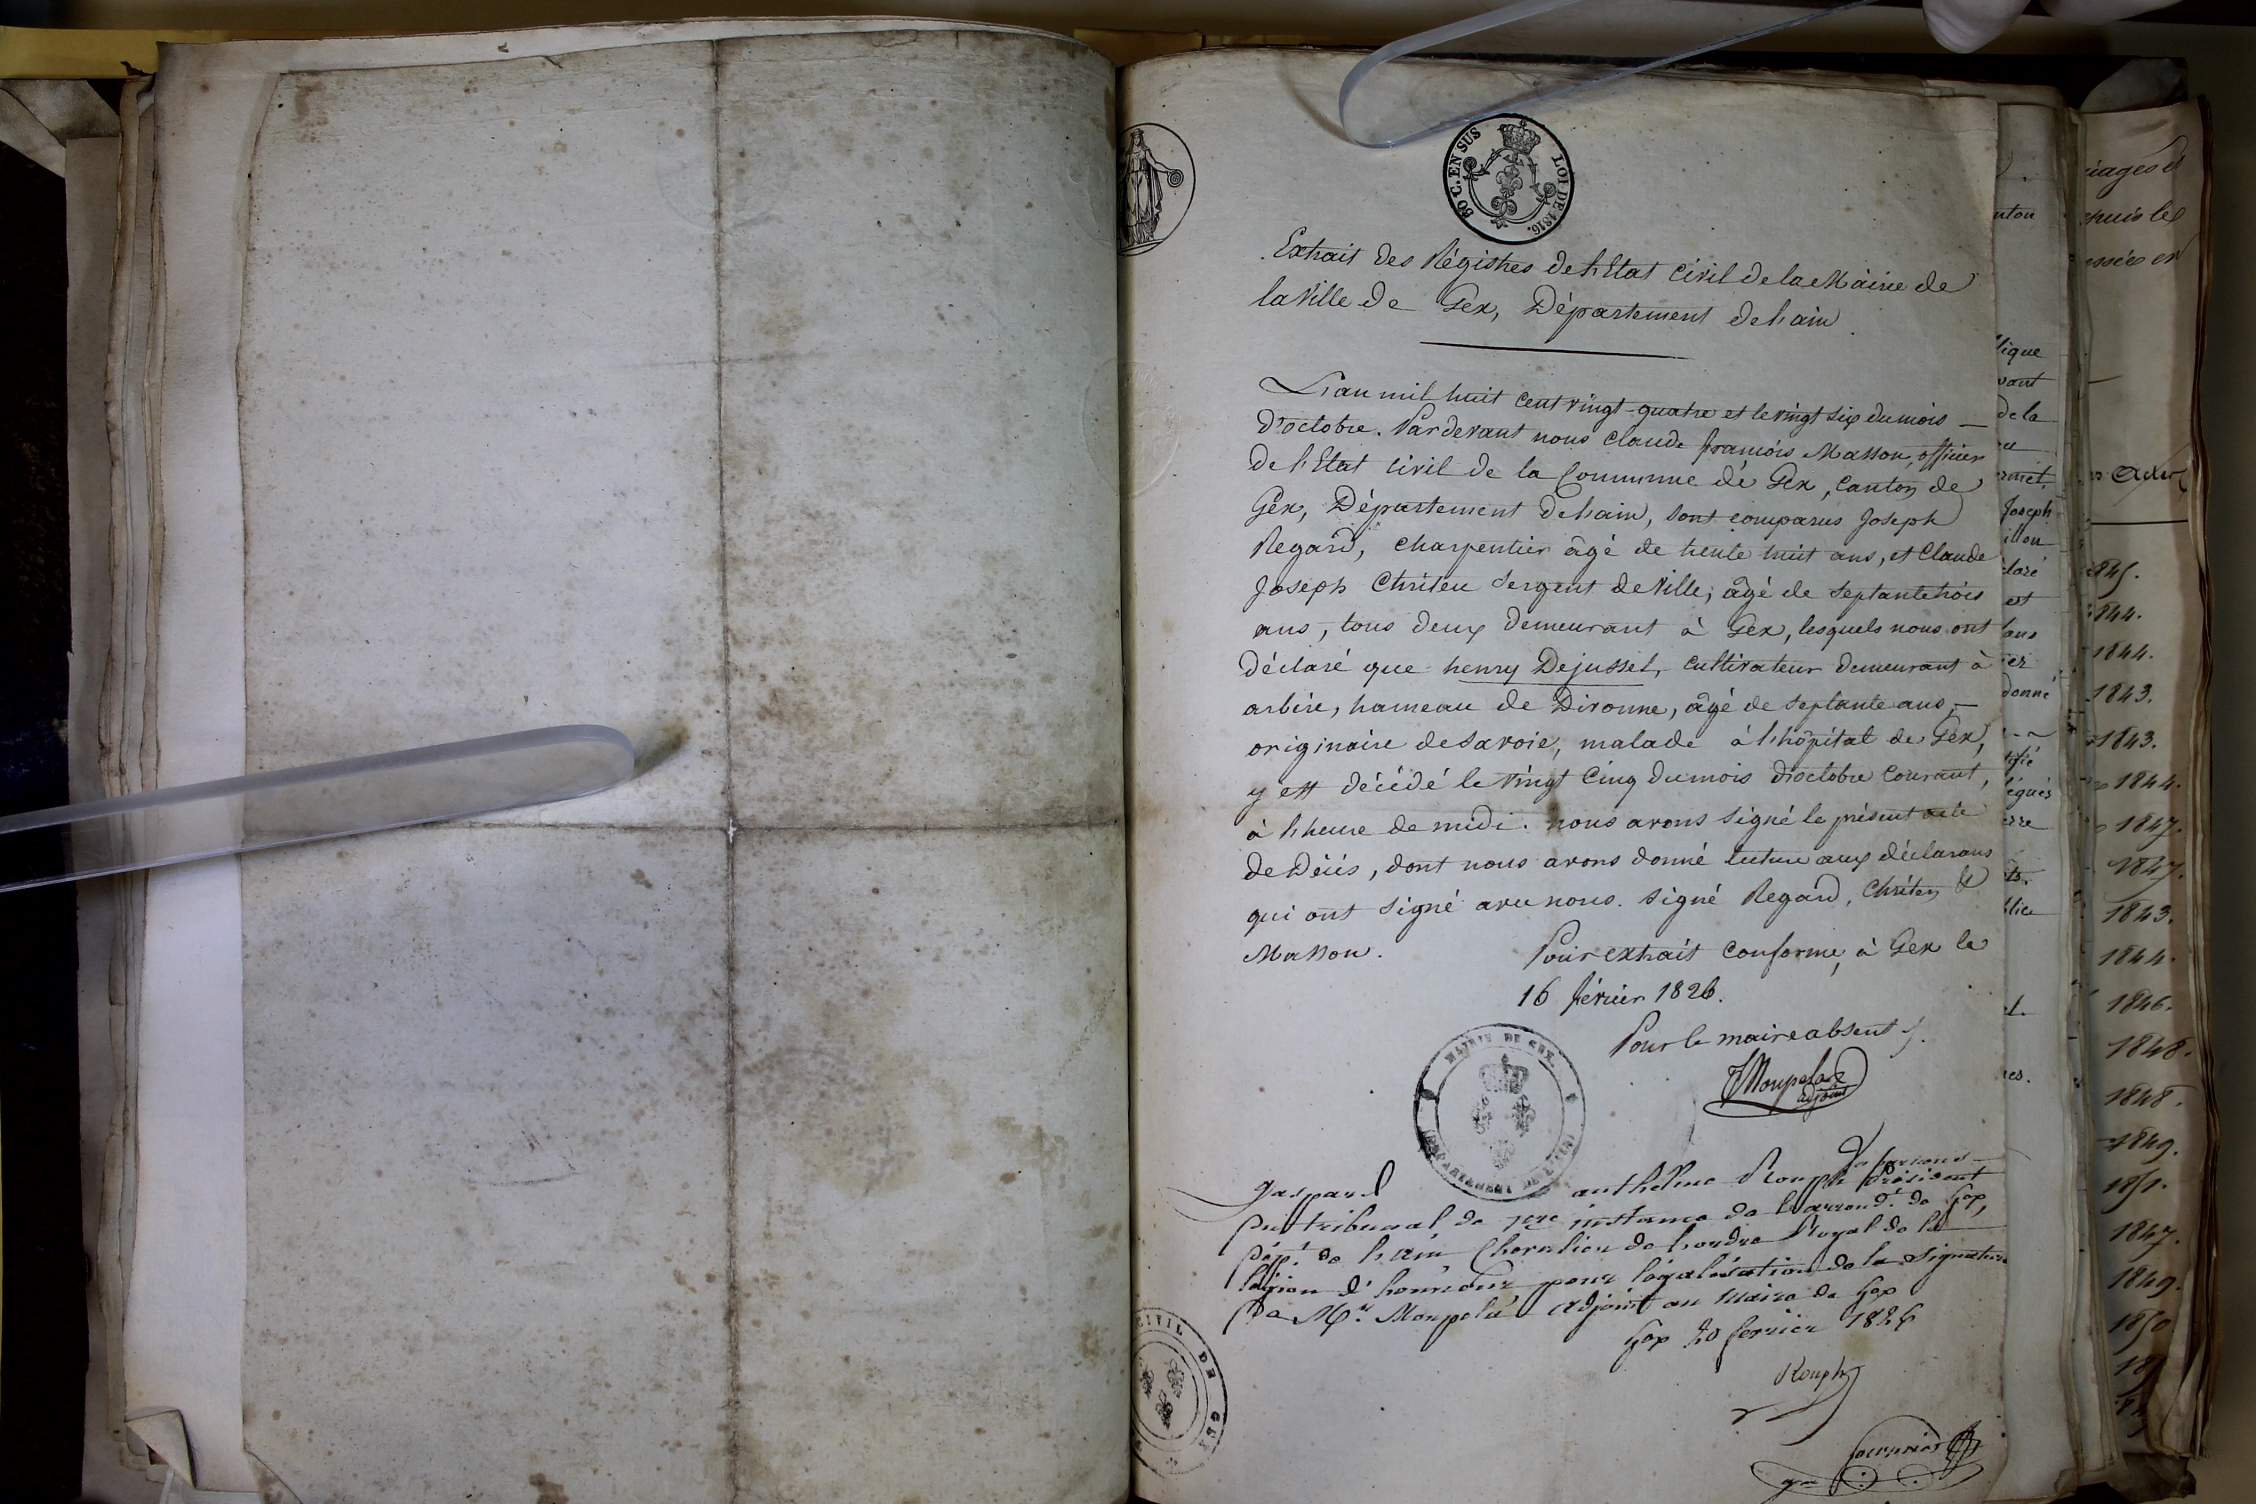 80 C. EN SUS
LOI DE 1816.
Extrait des Régistres de l'Etat Civil de la Mairie de
la Ville de Gex, Département de l'ain
L'an mil huit cent vingt-quatre et le vingt six du mois
d'octobre. Par devant nous Claude françois Masson, officier
de l'Etat Civil de la Commune de Gex, Canton de
Gex, Département de l'ain, sont comparus Joseph
Regard, charpentier âgé de trente huit ans, et Claude
Joseph Chrêten Sergent de Ville, âgé de septante trois
ans, tous deux demeurant à Gex, lesquels nous ont
déclaré que henry Dejussel, cultivateur demeurant à
arbère, hameau de Divonne, âgé de septante ans,
originaire de Savoie, malade à l'hôpital de Gex,
y est décédé le vingt cinq du mois d'octobre courant,
à l'heure de midi. nous avons signé le présent acte
de Décès, dont nous avons donné lecture aux déclarans
qui ont signé avec nous. Signé Regard, Chrêten &
Masson.
Pour extrait conforme, à Gex le
16 février 1826.
Pour le maire absent
Moupelas
adjoint
MAIRIE DE GEX
DEPARTEMENT DE L'AIN
Gaspard anthelme Rouph
Président
du tribunal de 1re instance de l'arrondt. de Gex,
dépt. de l'ain Chevalier de l'ordre Royal de la
légion d'honneur pour légalisation de la Signature
de Mr. Monpela adjoint au Maire de Gex
Gex 20 fevrier 1826
Rouph
CIVIL DE GEX
nton
lique
vant
de la
Joseph
est
donné
1844.
1843.
1843.
1844.
1847.
1847.
1843.
1844.
1846.
1848.
1848.
1849.
1851.
1847.
1849.
1850